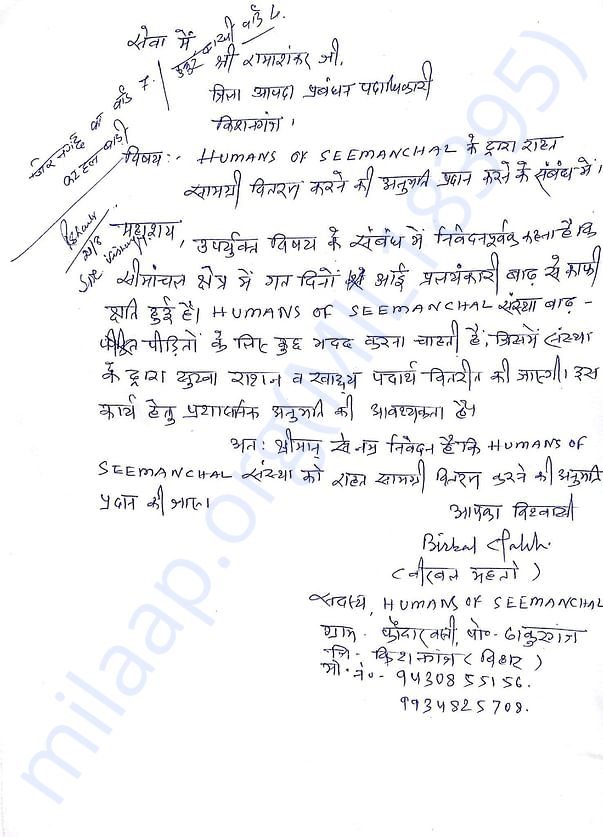 सेवा में
श्री रामाशंकर जी,
जिला आपदा प्रबंधन पदाधिकारी
किशनगंज।
विषय:- HUMANS OF SEEMANCHAL के द्वारा राहत
सामग्री वितरण करने की अनुमति प्रदान करने के संबंध में।
महाशय,
उपर्युक्त विषय के संबंध में निवेदनपूर्वक कहना है कि
सीमांचल क्षेत्र में गत दिनों आई प्रलयंकारी बाढ़ से काफी
क्षति हुई है। HUMANS OF SEEMANCHAL संस्था बाढ़-
पीड़ितों के लिए कुछ मदद करना चाहती है, जिसमें संस्था
के द्वारा सुखा राशन व खाद्य पदार्थ वितरीत की जाएगी। इस
कार्य हेतु प्रशासनिक अनुमति की आवश्यकता है।
अत: श्रीमान् से नम्र निवेदन है कि HUMANS OF
SEEMANCHAL संस्था को राहत सामग्री वितरण करने की अनुमति
प्रदान की जाए।
आपका विश्वासी
Birbal
(बीरबल महतो)
सदस्य, HUMANS OF SEEMANCHAL
ग्राम- पो०- ठाकुरगंज
जि- किशनगंज (बिहार)
मो. नं०- 9430855156.
9934825708.
वार्ड 7.
milaap.org(MIL18395)